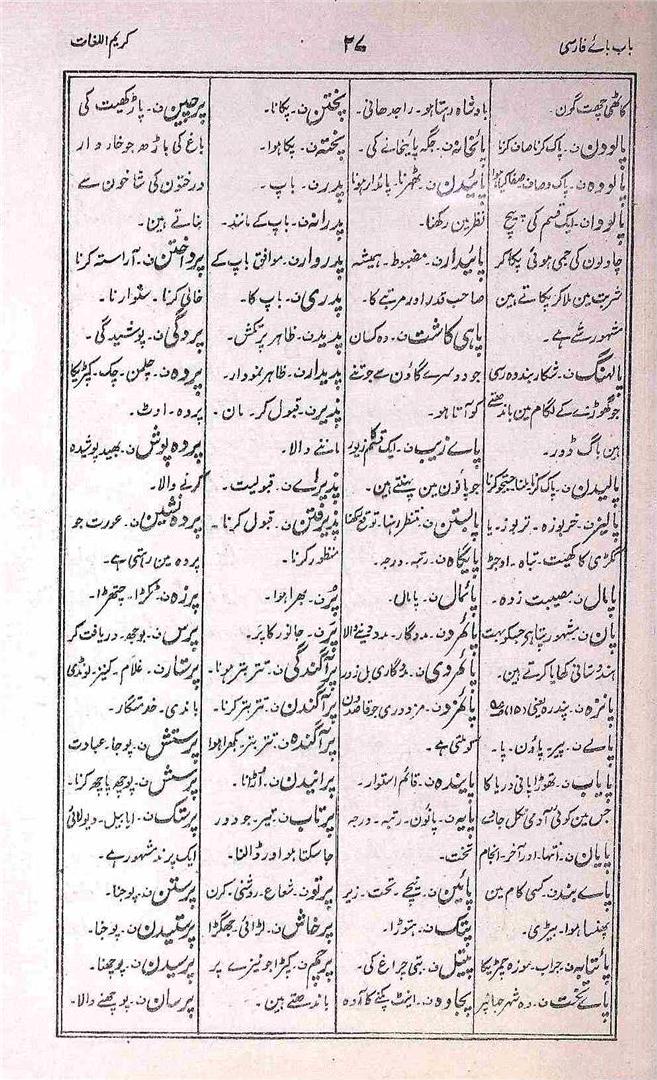 باب بائے فارسی
۲۷
کریم اللغات
کاٹھی چھت گون۔
پالودن ن۔ پاک کرنا صاف کرنا
پالودہ ن۔ پاک و صاف صفا کیا ہوا
پالودا ن۔ ایک قسم کی پیچ
چاولون کی جمی ہوئی پکا کر
شربت مین ملا کر پکاتے ہین
مشہور شے ہے۔
پالہنگ ن۔ شکار بند وہ رسی
جو گھوڑنے کے لگام مین باندھتے
ہین باگ ڈور۔
پالیدن ن۔ پاک کرنا بٹنا جستجو کرنا
پالیز ن۔ خربوزہ۔ تربوز۔ یا
ککڑی کا کھیت۔ تباہ۔ اوجڑ
پامال ن۔ مصیبت زدہ۔
پان ن۔ مشہور پتا ہی جسکو بہت
ہندوستانی کھایا کرتے ہین۔
پانزہ ن۔ پندرہ یعنی (۱۵)
پاے ن۔ پیر۔ پاؤن۔ پا۔
پایاب ن۔ تھوڑا پانی دریا کا
جس مین کوئی آدمی نکل جائے
پایان ن۔ انتہا۔ اور آخر۔ انجام
پاے بند ن۔ کسی کام مین
پھنسا ہوا۔ بیڑی۔
پائتابہ ن۔ جراب۔ موزہ چمڑیکا
پاے تخت ن۔ وہ شہر جہانپر
بادشاہ رہتا ہو۔ راجدھانی۔
پائخانہ ن۔ جگہ پائخانے کی۔
پائیدن ن۔ ٹھہرنا۔ پائدار ہونا
نظر مین رکھنا۔
پائیدار ن۔ مضبوط۔ ہمیشہ
صاحب قدر اور مرتبے کا۔
پاہی کاشت ن۔ وہ کسان
جو دوسرے گاؤن سے جوتنے
کو آتا ہو۔
پاے زیب ن۔ ایک قسم زیور
جو پانون مین پہنتے ہین۔
پالستن ن۔ منتظر رہنا۔ توقع رکھنا
پائگاہ ن۔ رتبہ۔ درجہ۔
پائمال ن۔ پامال۔
پائمرد ن۔ مددگار۔ مدد دینے والا
پائمردی ن۔ مددگاری
پائمزد ن۔ مزدوری جو قاصدون
کو ملتی ہے۔
پایندہ ن۔ قائم استوار۔
پایہ ن۔ پانون۔ رتبہ۔ درجہ
تخت۔
پائین ن۔ نیچے۔ تحت۔ زیر
پتک ن۔ ہتوڑا۔
پتیل ن۔ بتی چراغ کی۔
پجاوہ ن۔ اینٹ پکنے کا آوہ
پختن ن۔ پکانا۔
پختہ ن۔ پکا ہوا۔
پدر ن۔ باپ۔
پدرانہ ن۔ باپ کے مانند۔
پدروار ن۔ موافق باپ کے
پدری ن۔ باپ کا۔
پدید ن۔ ظاہر
پدیدار ن۔ ظاہر نمودار۔
پذیر ن۔ قبول کر۔ مان۔
ماننے والا۔
پذیراے ن۔ قبولیت۔
پذیرفتن ن۔ قبول کرنا۔
منظور کرنا۔
پر ن۔ بھرا ہوا۔
پر ن۔ جانور کا پر۔
پراگندگی ن۔ تتر بتر ہونا۔
پراگندن ن۔ تتر بتر کرنا۔
پراگندہ ن۔ تتر بتر۔ بکھرا ہوا
پرانیدن ن۔ اڑانا۔
پرتاب ن۔ تیر۔ جو دور
جا سکتا ہو اور ڈالنا۔
پرتو ن۔ شعاع۔ روشنی۔ کرن
پرخاش ن۔ لڑائی۔ جھگڑا
پرچم ن۔ کپڑا جو نیزے پر
باندھتے ہین۔
پرچین ن۔ پاڑ کھیت کی
باغ کی باڑھ جو خار دار
درختون کی شاخون سے
بناتے ہین۔
پرداختن ن۔ آراستہ کرنا
خالی کرنا۔ سنوارنا۔
پردگی ن۔ پوشیدگی۔
پردہ ن۔ چلمن۔ چک۔ کپڑیکا
پردہ۔ اوٹ۔
پردہ پوش ن۔ بھید پوشیدہ
کرنے والا۔
پردہ نشین ن۔ عورت جو
پردہ مین رہتی ہے۔
پرزہ ن۔ ٹکڑا۔ چتھڑا۔
پرس ن۔ پوچھ۔ دریافت کر
پرستار ن۔ غلام۔ کنیز۔ لونڈی
باندی۔ خدمتگار۔
پرستش ن۔ پوجا۔ عبادت
پرسش ن۔ پوچھ پاچھ کرنا۔
پرستک ن۔ ابابیل۔ دیولائی
ایک پرند مشہور ہے۔
پرستن ن۔ پوجنا۔
پرستیدن ن۔ پوجنا۔
پرسیدن ن۔ پوچھنا۔
پرسان ن۔ پوچھنے والا۔